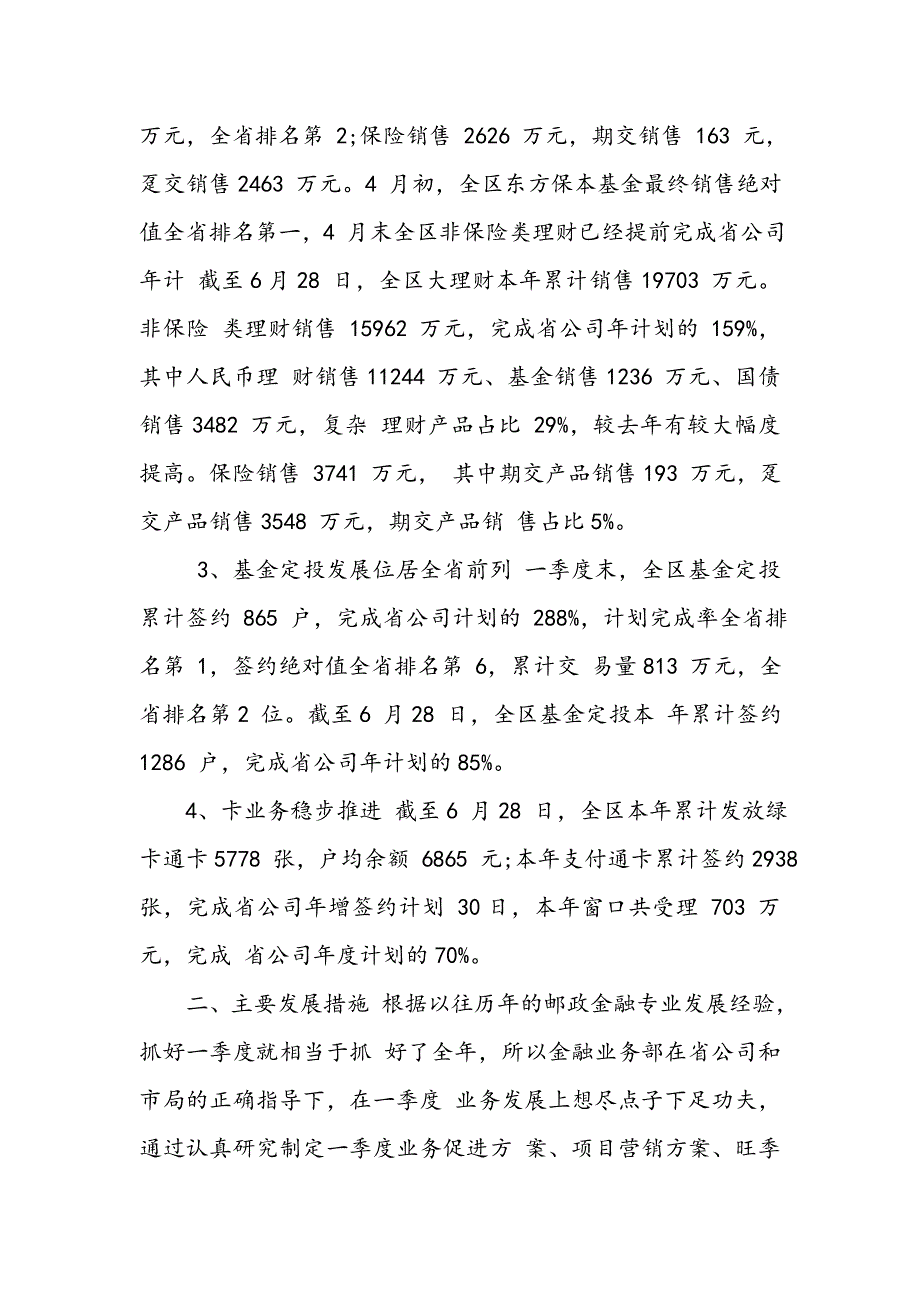 万元，全省排名第 2;保险销售 2626 万元，期交销售 163 元，
趸交销售2463 万元。4 月初，全区东方保本基金最终销售绝对
值全省排名第一，4 月末全区非保险类理财已经提前完成省公司
年计 截至6月28 日，全区大理财本年累计销售19703 万元。
非保险 类理财销售 15962 万元，完成省公司年计划的 159%，
其中人民币理 财销售11244 万元、基金销售1236 万元、国债
销售3482 万元，复杂 理财产品占比 29%，较去年有较大幅度
提高。保险销售 3741 万元， 其中期交产品销售193 万元，趸
交产品销售3548 万元，期交产品销 售占比5%。
3、基金定投发展位居全省前列 一季度末，全区基金定投
累计签约 865 户，完成省公司计划的 288%，计划完成率全省排
名第 1，签约绝对值全省排名第 6，累计交 易量813 万元，全
省排名第2 位。截至6 月28 日，全区基金定投本 年累计签约
1286 户，完成省公司年计划的85%。
4、卡业务稳步推进 截至6 月28 日，全区本年累计发放绿
卡通卡5778 张，户均余额 6865 元;本年支付通卡累计签约2938
张，完成省公司年增签约计划 30日，本年窗口共受理 703 万
元，完成 省公司年度计划的70%。
二、主要发展措施 根据以往历年的邮政金融专业发展经验，
抓好一季度就相当于抓 好了全年，所以金融业务部在省公司和
市局的正确指导下，在一季度 业务发展上想尽点子下足功夫，
通过认真研究制定一季度业务促进方 案、项目营销方案、旺季